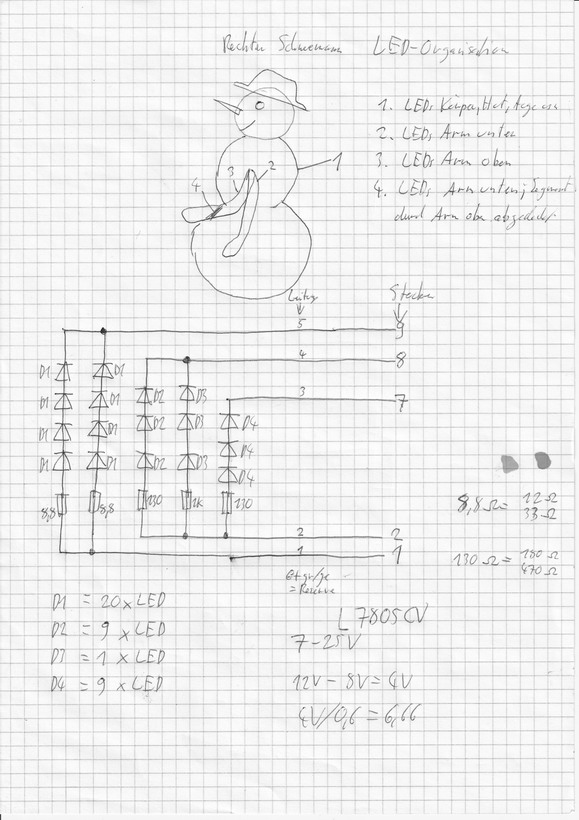 Rechter Schneemann LED-Organisation
1. LEDs Körper, Hut, Auge
2. LEDs Arm unten
3. LEDs Arm oben
4. LEDs Arm unten; Segment
durch Arm oben abgedeckt
1
2
3
4
Leitung Stecker
5 9
4 8
3 7
D1 D1
D1 D1 D2 D3
D1 D1 D2 D3 D4
D1 D1 D2 D3 D4
D4
8,8 8,8 130 1K 130
2 2
1 1
6+gn/ge
= Reserve
8,8 Ω = 12 Ω
33 Ω
130 Ω = 180 Ω
470 Ω
D1 = 20 x LED
D2 = 9 x LED
D3 = 1 x LED
D4 = 9 x LED
L7805CV
7-25V
12V - 8V = 4V
4V/0,6 = 6,66